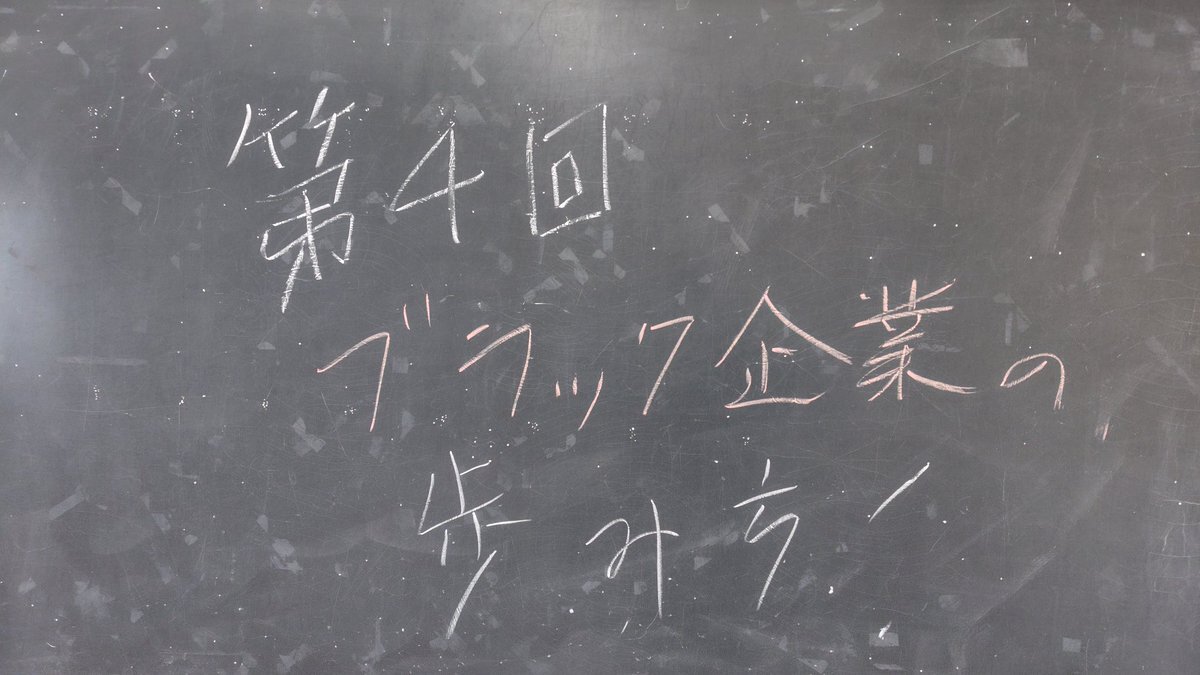 第4回
ブラック企業の
歩み方!